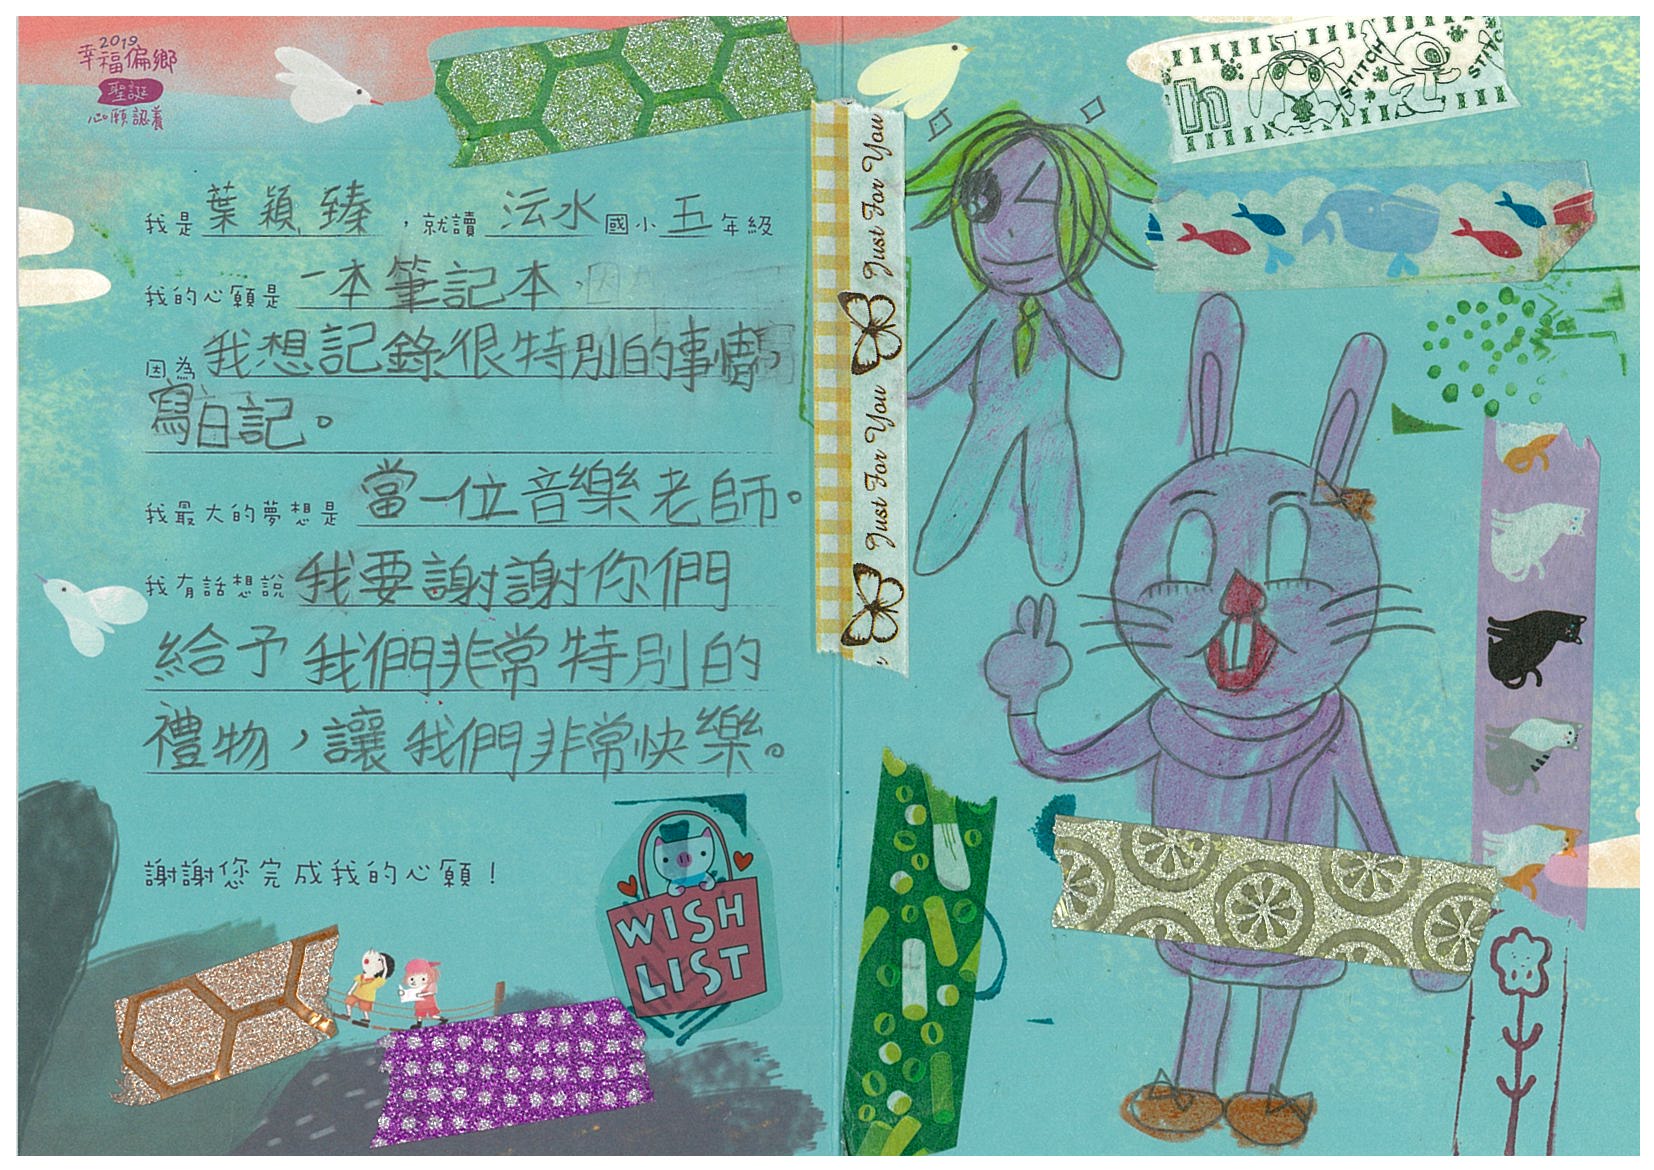 2019
幸福偏鄉
聖誕
心願認養
我是葉穎臻，就讀沄水國小五年級
我的心願是一本筆記本，因為
因為我想記錄很特別的事情，
寫日記。
我最大的夢想是當一位音樂老師。
我有話想說我要謝謝你們
給予我們非常特別的
禮物，讓我們非常快樂。
謝謝您完成我的心願！
WISH
LIST
Just For You
Just For You
STITCH
STITC